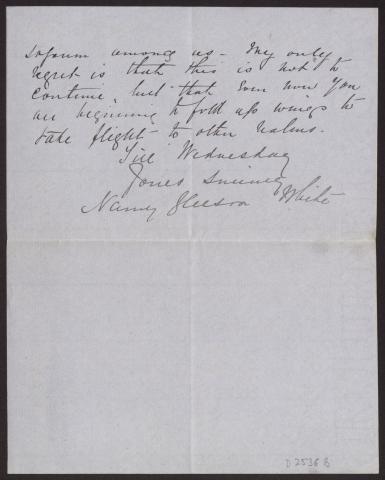 sojourn among us - My only
regret is that this is not to
continue, but that Even now you
are beginning to fold up wings to
take flight to other realms.
Till Wednesday
Yours Sincerely
Nanny Gleeson White
D2536 B